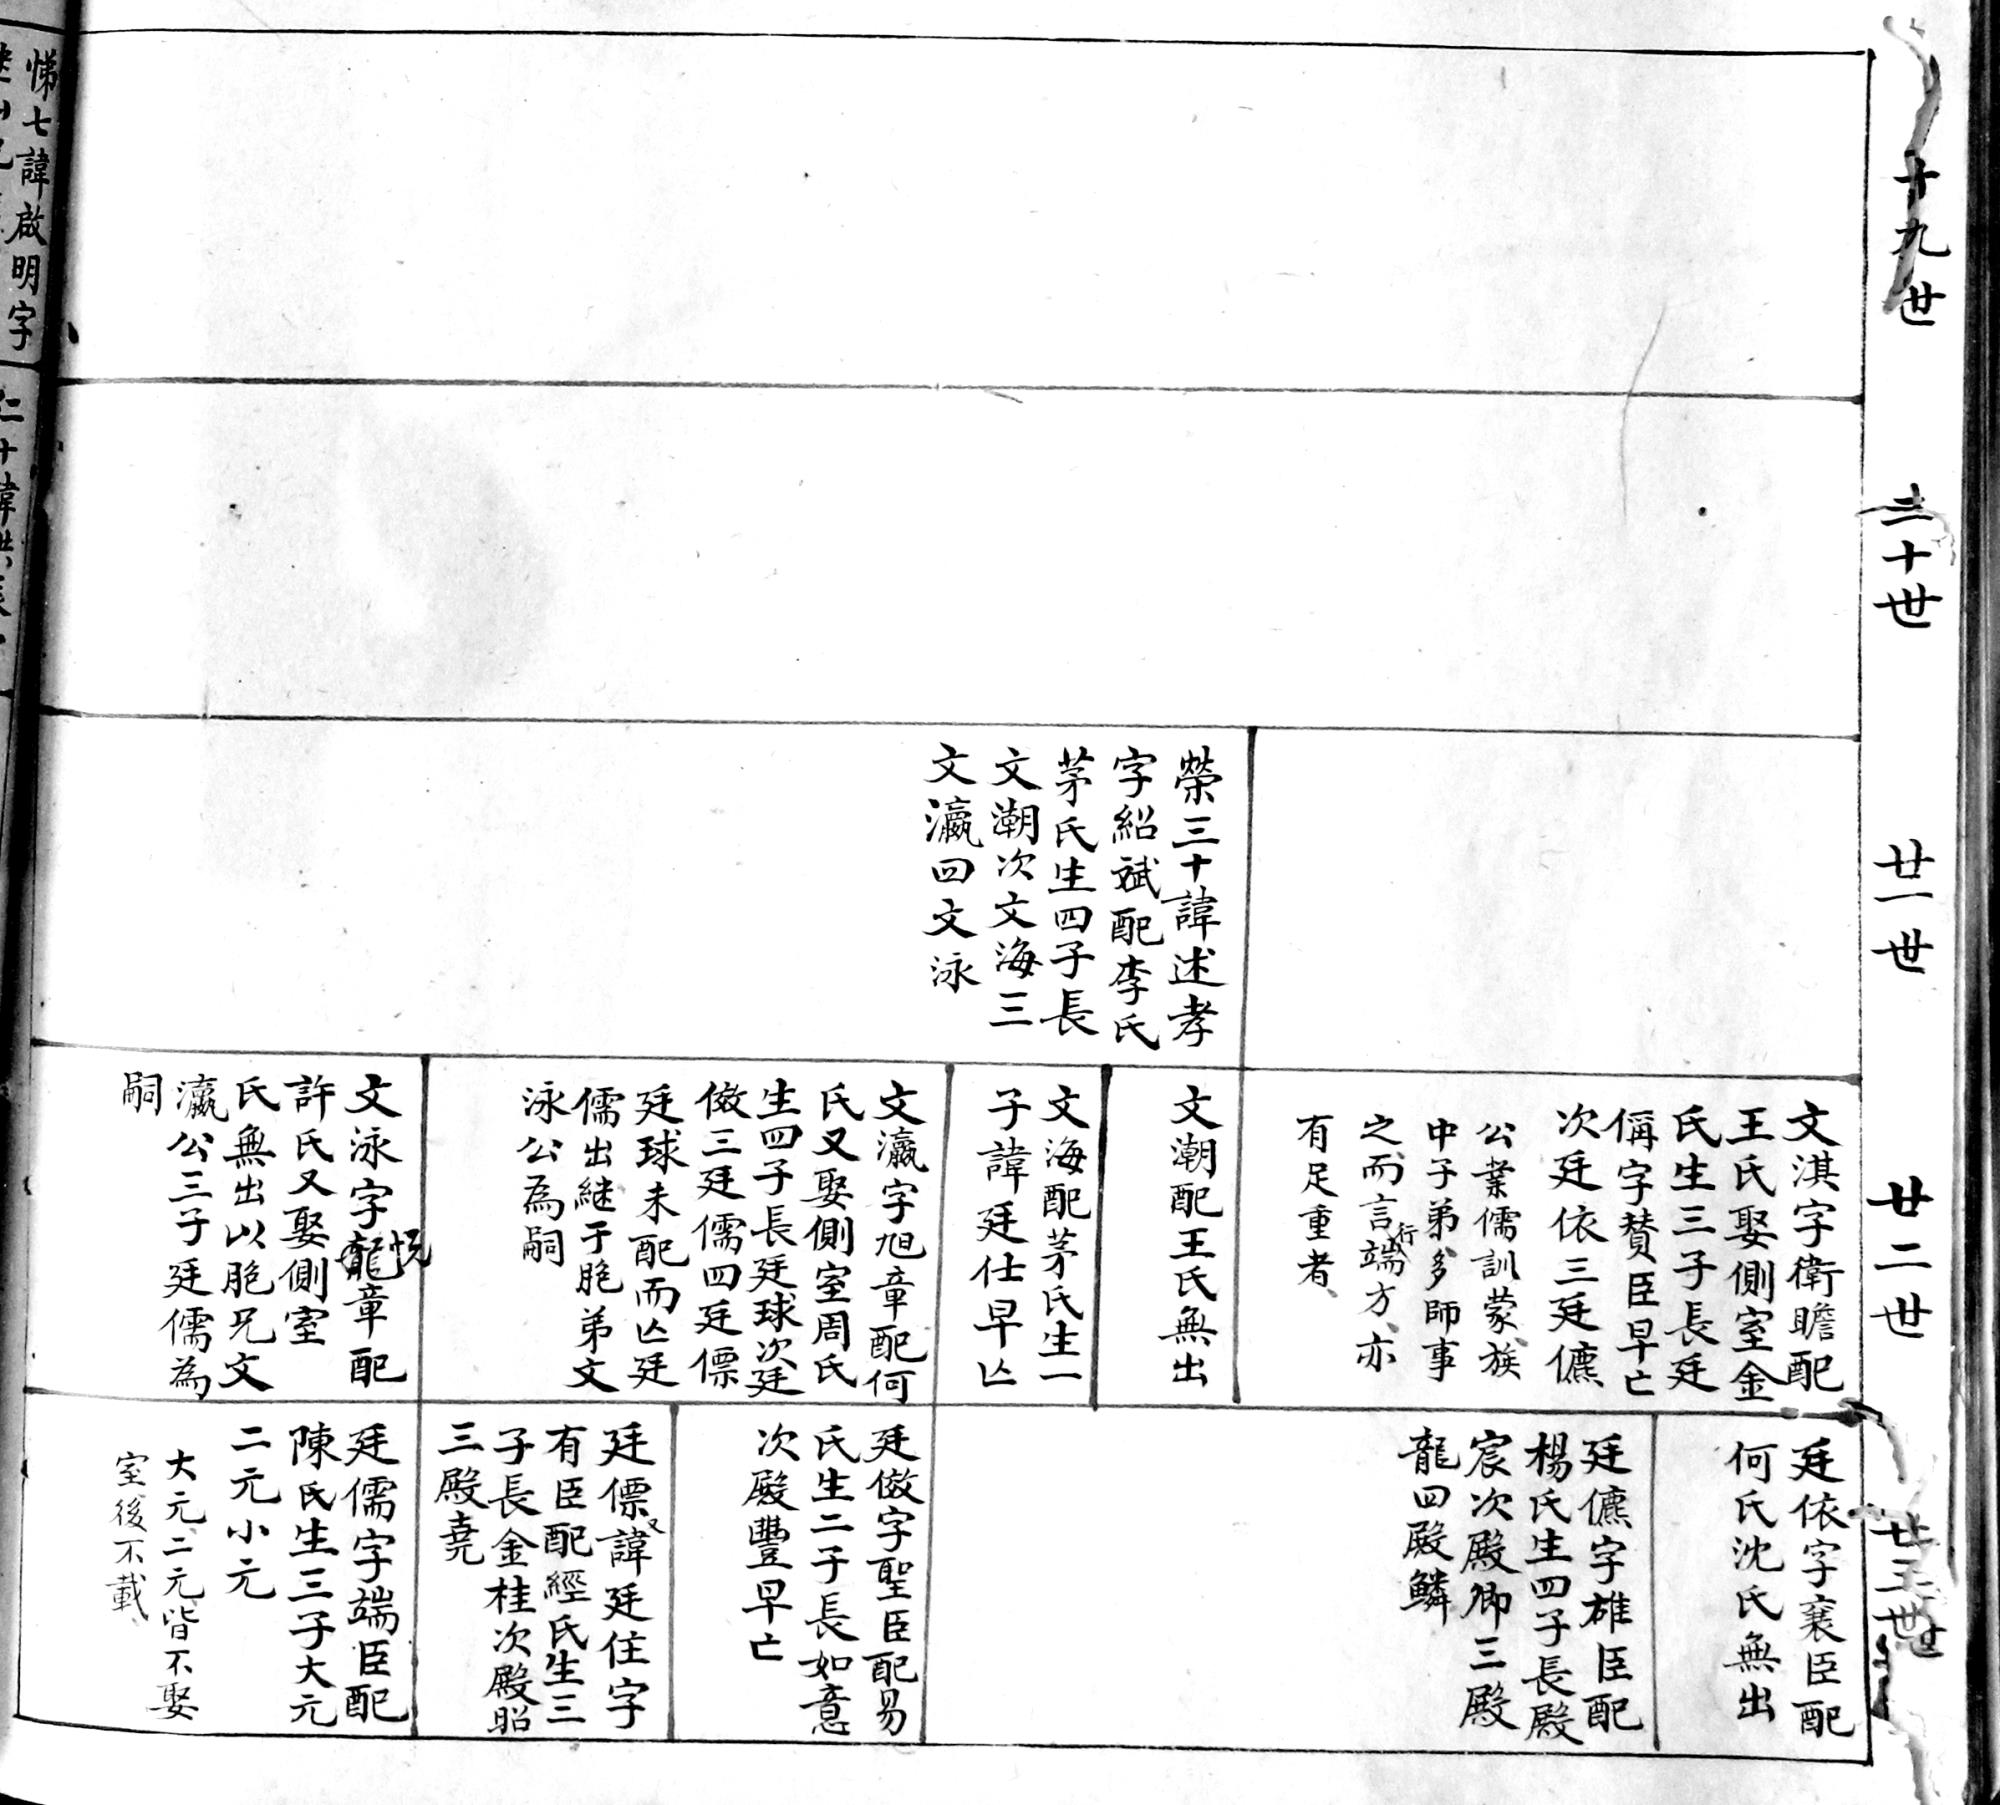 十九世
二十世
廿一世
榮三十諱述孝
字紹斌配李氏
茅氏生四子長
文潮次文海三
文瀛四文泳
廿二世
文淇字衛瞻配
王氏娶側室金
氏生三子長廷
偁字賛臣早亡
次廷依三廷儦
公業儒訓蒙、族
中子弟多師事
之、而言行端方、亦
有足重者、
文潮配王氏無出
文海配茅氏生一
子諱廷仕早亾
文瀛字旭章配何
氏又娶側室周氏
生四子長廷球次廷
儆三廷儒四廷僄
廷球未配而亾廷
儒出継于胞弟文
泳公為嗣
文泳字龍章配
悦
許氏又娶側室
氏無出以胞兄文
瀛公三子廷儒為
嗣
廿三世
廷依字襄臣配
何氏沈氏無出
廷儦字雄臣配
楊氏生四子長殿
宸次殿卿三殿
龍四殿鱗
廷儆字聖臣配易
氏生二子長如意
次殿豐早亡
廷僄又諱廷住字
有臣配經氏生三
子長金桂次殿昭
三殿堯
廷儒字端臣配
陳氏生三子大元
二元小元
大元、二元、皆不娶
室後不載、
悌七諱啟明字
仁十諱